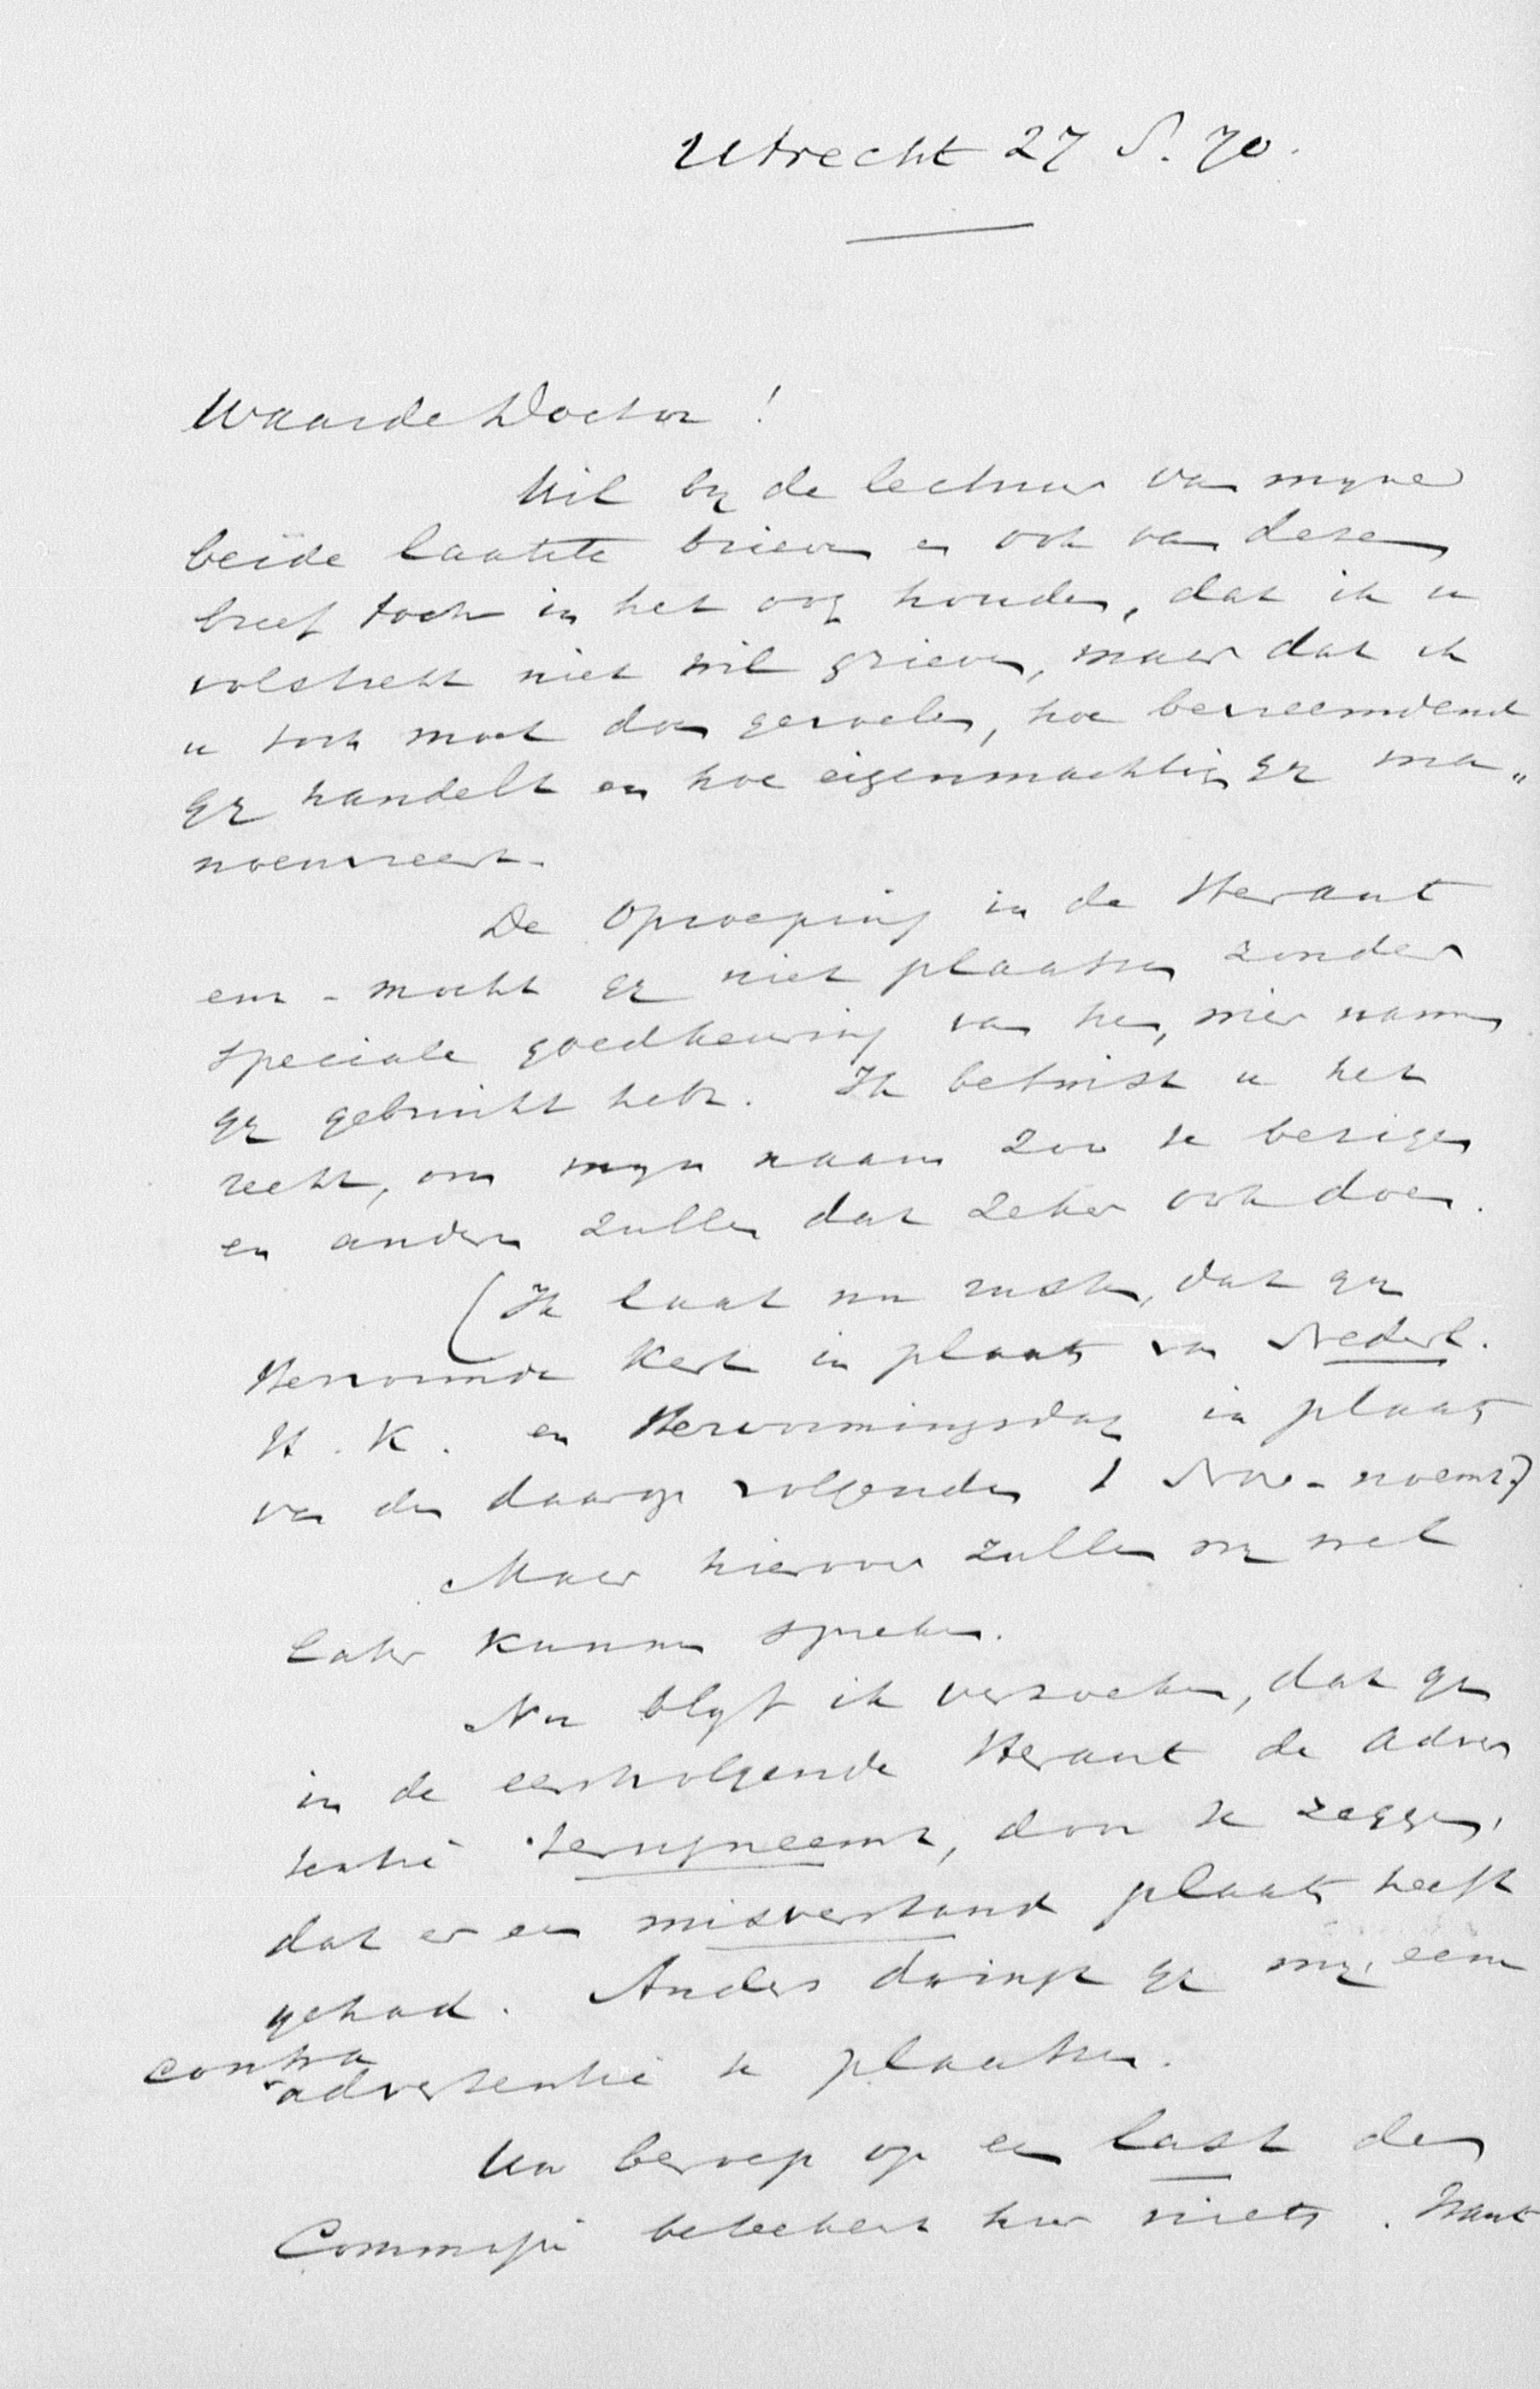 Utrecht 27 S. 70.
Waarde Doctor!
Wil bij de lectuur van mijne
beide laatste brieven en ook van dezen
brief toch in het oog houden, dat ik u
volstrekt niet wil grieven, maar dat ik
u toch moet doen gevoelen, hoe bevreemdend
gij handelt en hoe eigenmachtig gij ma„
noeuvreert.
De Oproeping in de Heraut
enz - mocht gij niet plaatsen zonder
speciale goedkeuring van hen, wier namen
gij gebruikt hebt. Ik betwist u het
recht, om mijn naam zoo te bezigen
en anderen zullen dat zeker ook doen.
(Ik laat nu rusten, dat gij
Hervormde Kerk in plaats van Nederl.
H. K. en Hervormingsdag in plaats
van den daarop volgenden 1 Nov - noemt)
Maar hierover zullen wij wel
later kunnen spreken.
Nu blijf ik verzoeken, dat gij
in de eerstvolgende Heraut de adver
tentie terugneemt, door te zeggen,
dat er een misverstand plaats heeft
gehad. Anders dwingt gij mij, eene
contra
advertentie te plaatsen.
Uw beroep op een last der
Commissie beteekent hier niets. Want